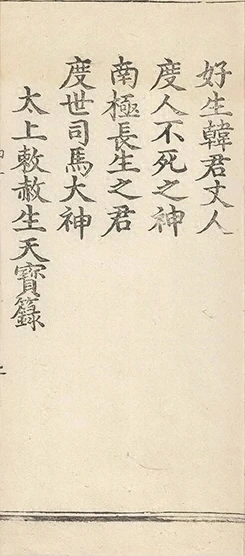 好生韓君丈人
度人不死之神
南極長生之君
度世司馬大神
太上敕赦生天寶籙